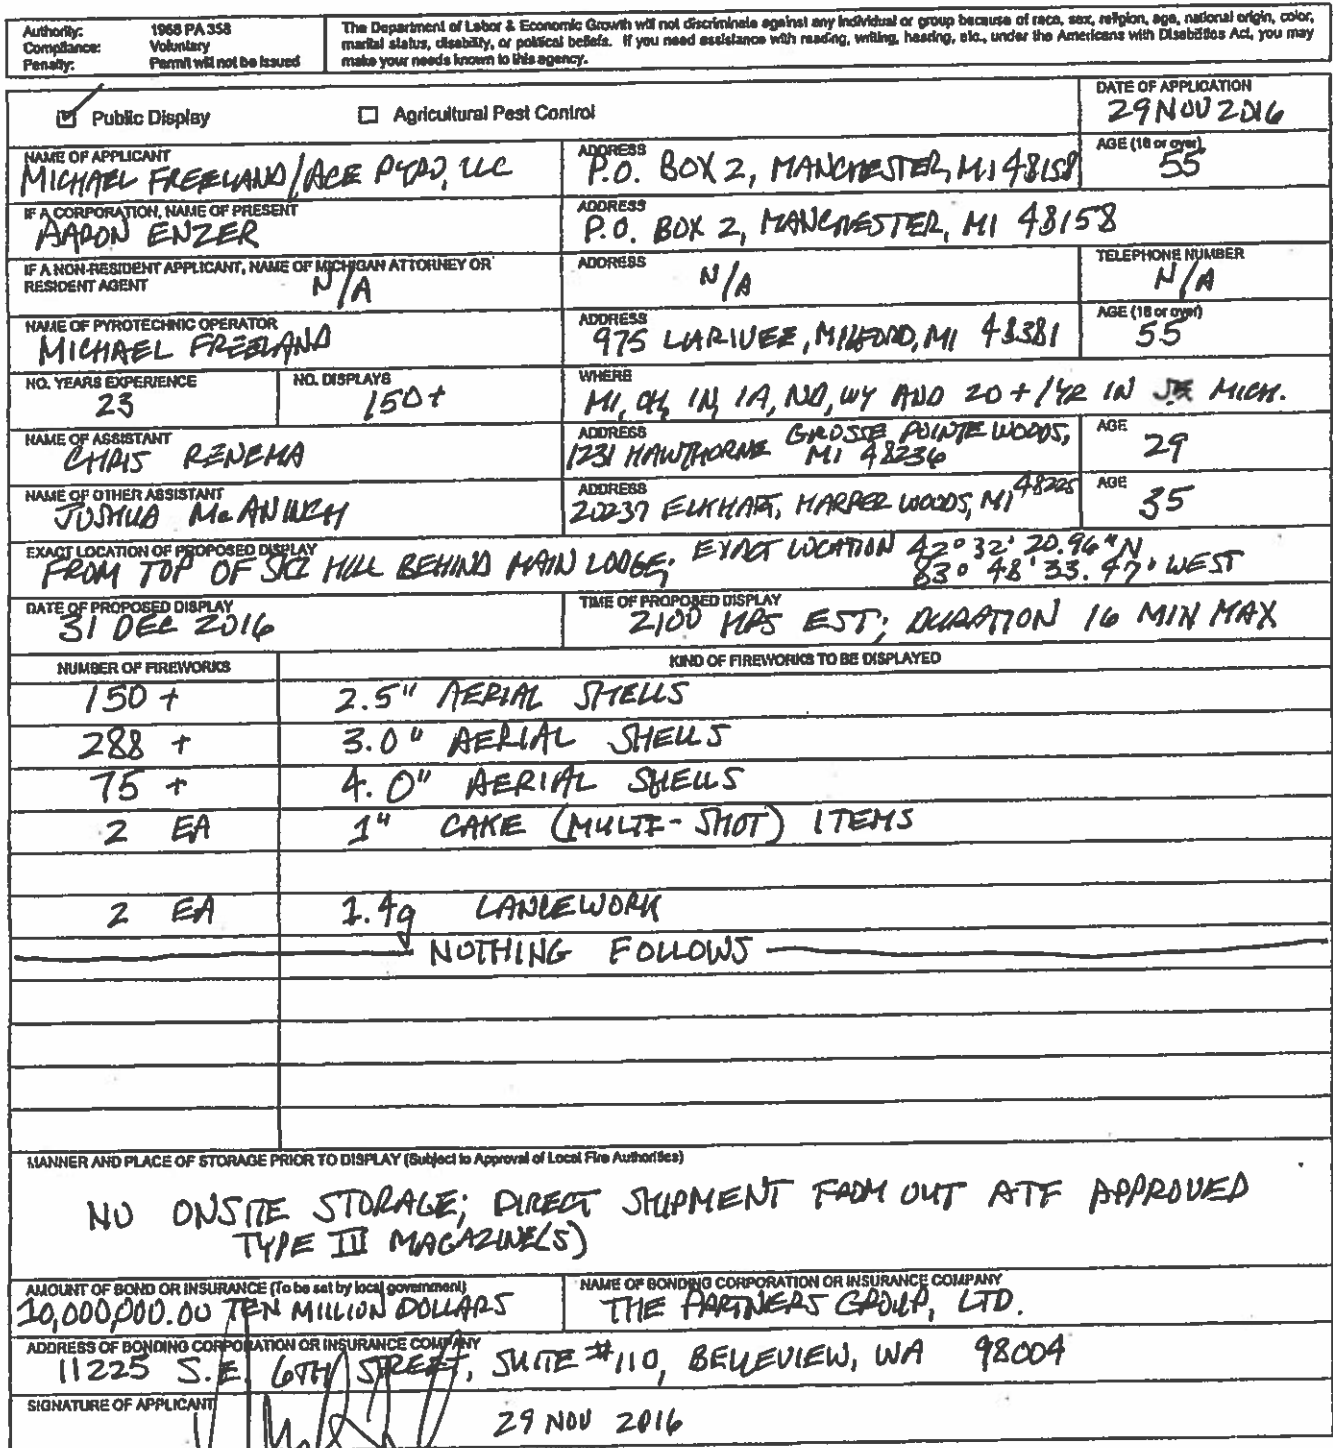 Authority: 1968 PA 358
Compliance: Voluntary
Penalty: Permit will not be issued
The Department of Labor & Economic Growth will not discriminate against any individual or group because of race, sex, religion, age, national origin, color,
marital status, disability, or political beliefs. If you need assistance with reading, writing, hearing, etc., under the Americans with Disabilities Act, you may
make your needs known to this agency.
☑ Public Display ☐ Agricultural Pest Control
DATE OF APPLICATION
29 NOV 2016
NAME OF APPLICANT
MICHAEL FREELAND/ACE PYRO, LLC
ADDRESS
P.O. BOX 2, MANCHESTER, MI 48158
AGE (18 or over)
55
IF A CORPORATION, NAME OF PRESENT
AARON ENZER
ADDRESS
P.O. BOX 2, MANCHESTER, MI 48158
IF A NON-RESIDENT APPLICANT, NAME OF MICHIGAN ATTORNEY OR
RESIDENT AGENT N/A
ADDRESS
N/A
TELEPHONE NUMBER
N/A
NAME OF PYROTECHNIC OPERATOR
MICHAEL FREELAND
ADDRESS
975 LARIVEE, MILFORD, MI 48381
AGE (18 or over)
55
NO. YEARS EXPERIENCE
23
NO. DISPLAYS
150+
WHERE
MI, OH, IN, IA, ND, WY AND 20+/YR IN SE MICH.
NAME OF ASSISTANT
CHRIS RENEMA
ADDRESS
1231 HAWTHORNE GROSSE POINTE WOODS,
MI 48236
AGE
29
NAME OF OTHER ASSISTANT
JOSHUA McANINCH
ADDRESS
20237 ELKHART, HARPER WOODS, MI 48225
AGE
35
EXACT LOCATION OF PROPOSED DISPLAY
FROM TOP OF SKI HILL BEHIND MAIN LODGE; EXACT LOCATION 42° 32' 20.96" N
83° 48' 33.47" WEST
DATE OF PROPOSED DISPLAY
31 DEC 2016
TIME OF PROPOSED DISPLAY
2100 HRS EST; DURATION 16 MIN MAX
NUMBER OF FIREWORKS
KIND OF FIREWORKS TO BE DISPLAYED
150 + 2.5" AERIAL SHELLS
288 + 3.0" AERIAL SHELLS
75 + 4.0" AERIAL SHELLS
2 EA 1" CAKE (MULTI-SHOT) ITEMS
2 EA 1.4g LANCEWORK
NOTHING FOLLOWS
MANNER AND PLACE OF STORAGE PRIOR TO DISPLAY (Subject to Approval of Local Fire Authorities)
NO ONSITE STORAGE; DIRECT SHIPMENT FROM OUT ATF APPROVED
TYPE III MAGAZINE(S)
AMOUNT OF BOND OR INSURANCE (To be set by local government)
10,000,000.00 TEN MILLION DOLLARS
NAME OF BONDING CORPORATION OR INSURANCE COMPANY
THE PARTNERS GROUP, LTD.
ADDRESS OF BONDING CORPORATION OR INSURANCE COMPANY
11225 S.E. 6TH STREET, SUITE #110, BELLEVIEW, WA 98004
SIGNATURE OF APPLICANT
29 NOV 2016